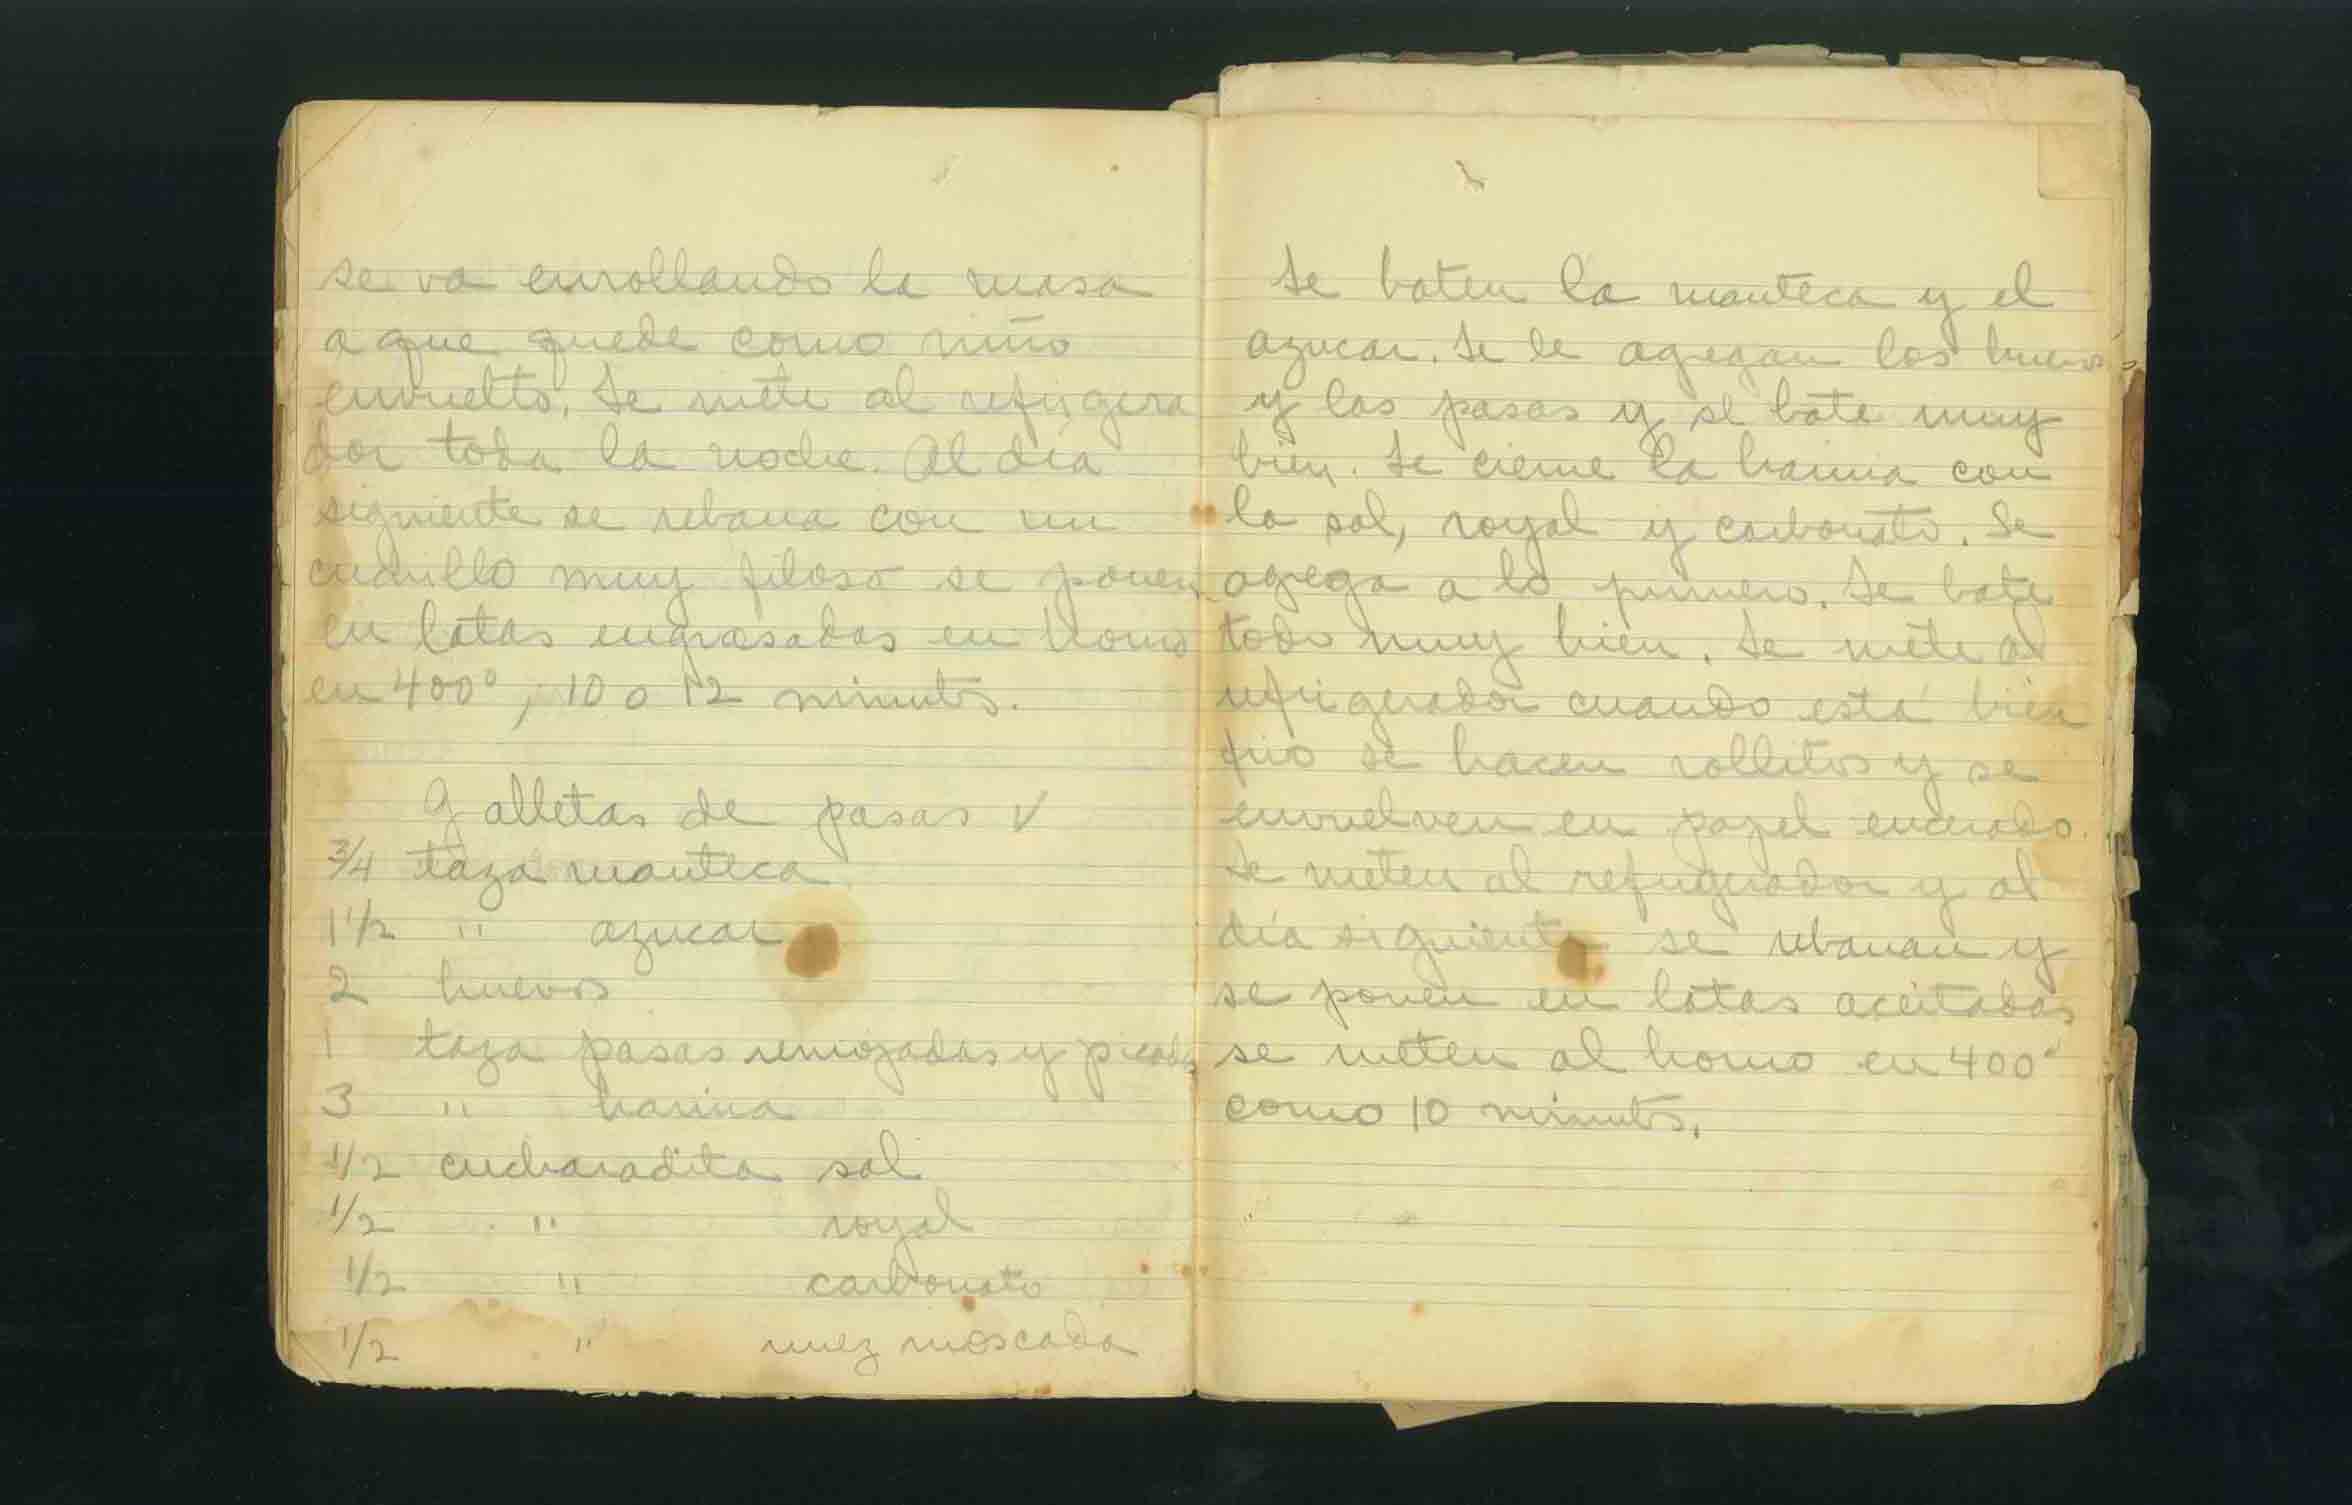 se va enrollando la masa
a que quede como niño
envuelto. Se mete al refrigera
dor toda la noche. Al día
siguiente se rebana con un
cuchillo muy filoso se ponen
en latas engrasadas en horno
en 400°, 10 o 12 minutos.
Galletas de pasas ✓
3/4 taza manteca
1 1/2 " azucar
2 huevos
1 taza pasas remojadas y picadas
3 " harina
1/2 cucharadita sal
1/2 " royal
1/2 " carbonato
1/2 " nuez moscada
Se baten la manteca y el
azucar. Se le agregan los huevos
y las pasas y se bate muy
bien. Se cierne la harina con
la sal, royal y carbonato. Se
agrega a lo primero. Se bate
todo muy bien. Se mete al
refrigerador cuando está bien
frio se hacen rollitos y se
envuelven en papel encerado.
Se meten al refrigerador y al
día siguiente se rebanan y
se ponen en latas aceitadas
se meten al horno en 400°
como 10 minutos.